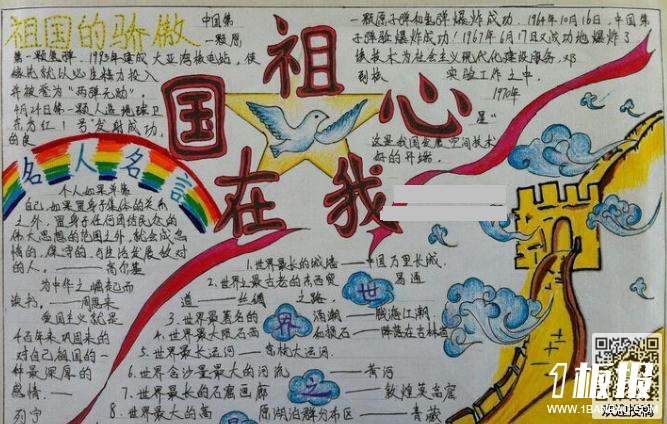 祖国的骄傲
中国第
一颗原
第一颗氢弹,1993年建成大亚湾核电站,使
核
就从必生精力投入
并被誉为“两弹元勋”。
4月24日第一颗人造地球卫
东方红1号”发射成功,
的良
祖国在我心
一颗原子弹和氢弹爆炸成功。1964年10月16日,中国第
子弹验爆炸成功!1967年6月17日又成功地爆炸了
核技术为社会主义现代化建设服务。邓
到核
实验工作之中,
1970年
星“
这是我国发展空间技术
好的开端。
名人名言
个人如果单靠
自己,如果置身于集体的关系
之外,置身于任何团结民众的
伟大思想的范围之外,就会成怠
惰的,保守的,与生活发展敌对
的人。——高尔基
为中华之崛起而
读书。——周恩来
爱国主义就是
千百年来巩固来的
对自己祖国的一
种最深厚的
感情。——
列宁
世界之
1.世界最长的城墙——中国万里长城。
2.世界之最古老的东西贸易通
道——丝绸之路。
3.世界最著名的涌潮——钱塘江潮。
4.世界最大陨石雨和陨石——降落在吉林省
5.世界最长运河——京杭大运河。
6.世界含沙量最大的河流——黄河
7.世界最长的石窟画廊——敦煌莫高窟
8.世界最大的高原湖泊群分布区——青藏
1板报
WWW.1BANBAO.COM
欢迎投稿